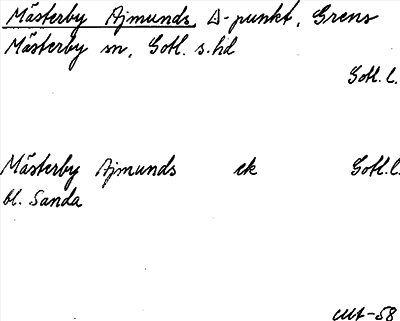 Mästerby Ajmunds, Δ-punkt, Grens
Mästerby sn, Gotl. s. hd
Gotl. l.
Mästerby Ajmunds ek Gotl. l.
bl. Sanda
Mt-58